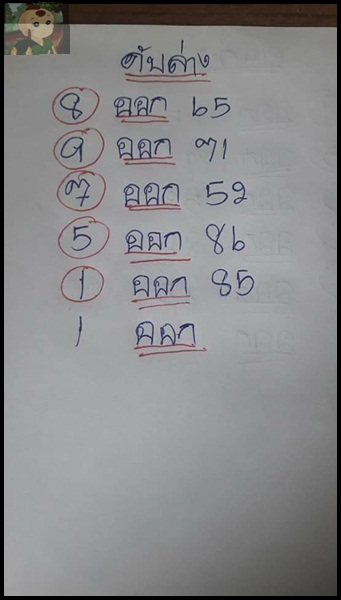 ดับล่าง
8 ออก 65
9 ออก 71
7 ออก 52
5 ออก 86
1 ออก 85
1 ออก